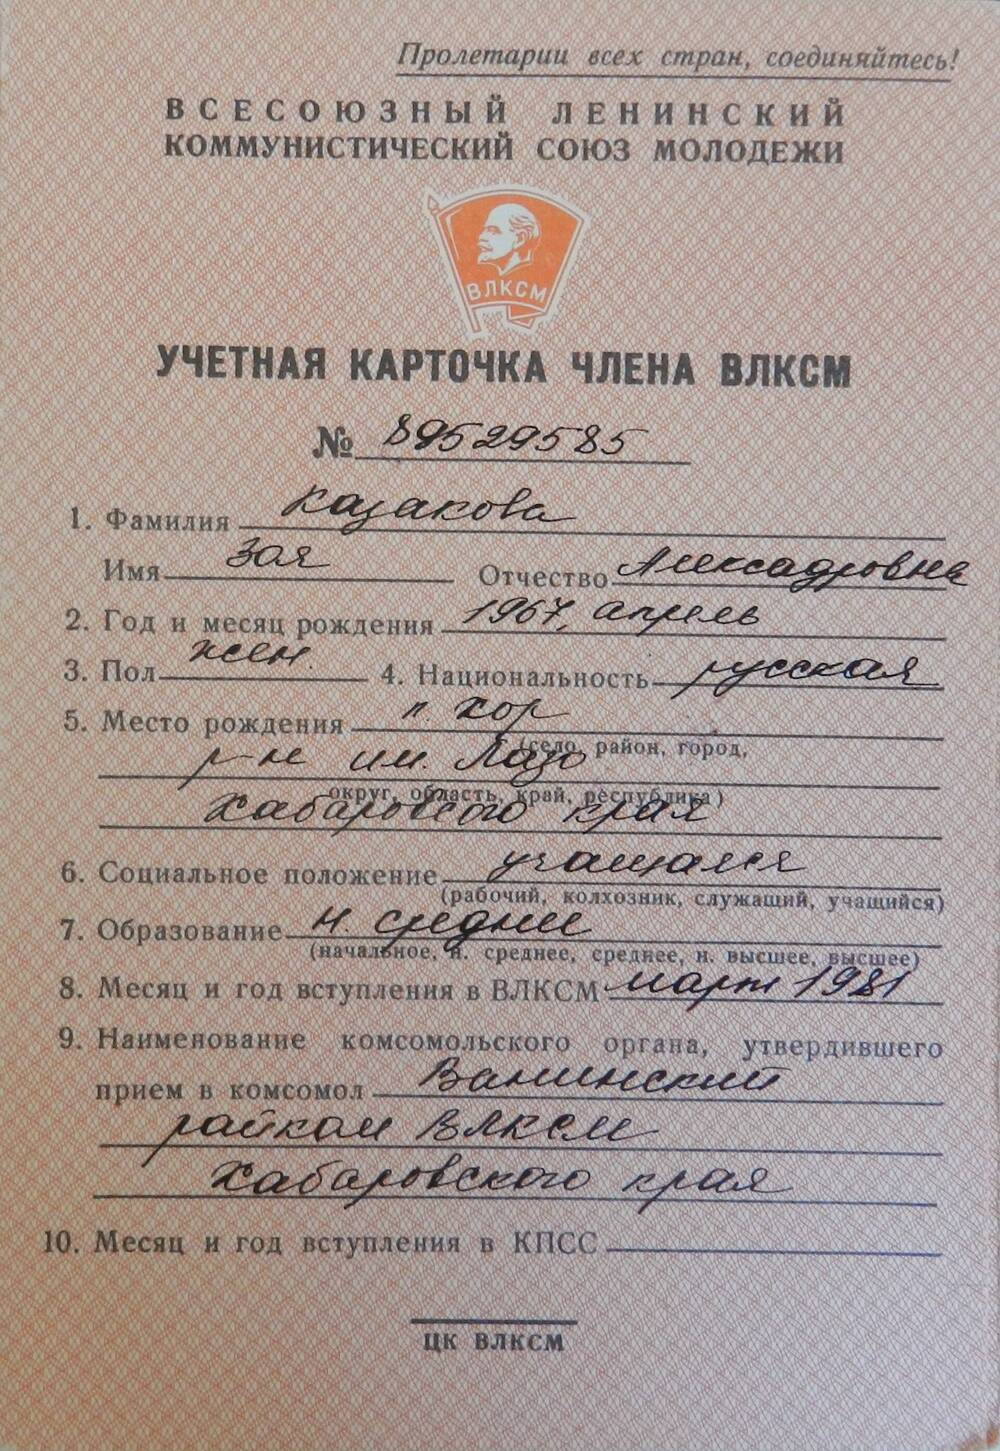 Пролетарии всех стран, соединяйтесь!
ВСЕСОЮЗНЫЙ ЛЕНИНСКИЙ
КОММУНИСТИЧЕСКИЙ СОЮЗ МОЛОДЕЖИ
ВЛКСМ
УЧЕТНАЯ КАРТОЧКА ЧЛЕНА ВЛКСМ
№ 89529585
1. Фамилия Казакова
Имя Зоя Отчество Алексадровна
2. Год и месяц рождения 1967, апрель
3. Пол жен. 4. Национальность русская
5. Место рождения п. Хор
(село, район, город,
р-не им. Лазо
округ, область, край, республика)
Хабаровсого края
6. Социальное положение учащаяся
(рабочий, колхозник, служащий, учащийся)
7. Образование н. среднее
(начальное, н. среднее, среднее, н. высшее, высшее)
8. Месяц и год вступления в ВЛКСМ март 1981
9. Наименование комсомольского органа, утвердившего
прием в комсомол Ванинский
райком ВЛКСМ
Хабаровского края
10. Месяц и год вступления в КПСС
ЦК ВЛКСМ